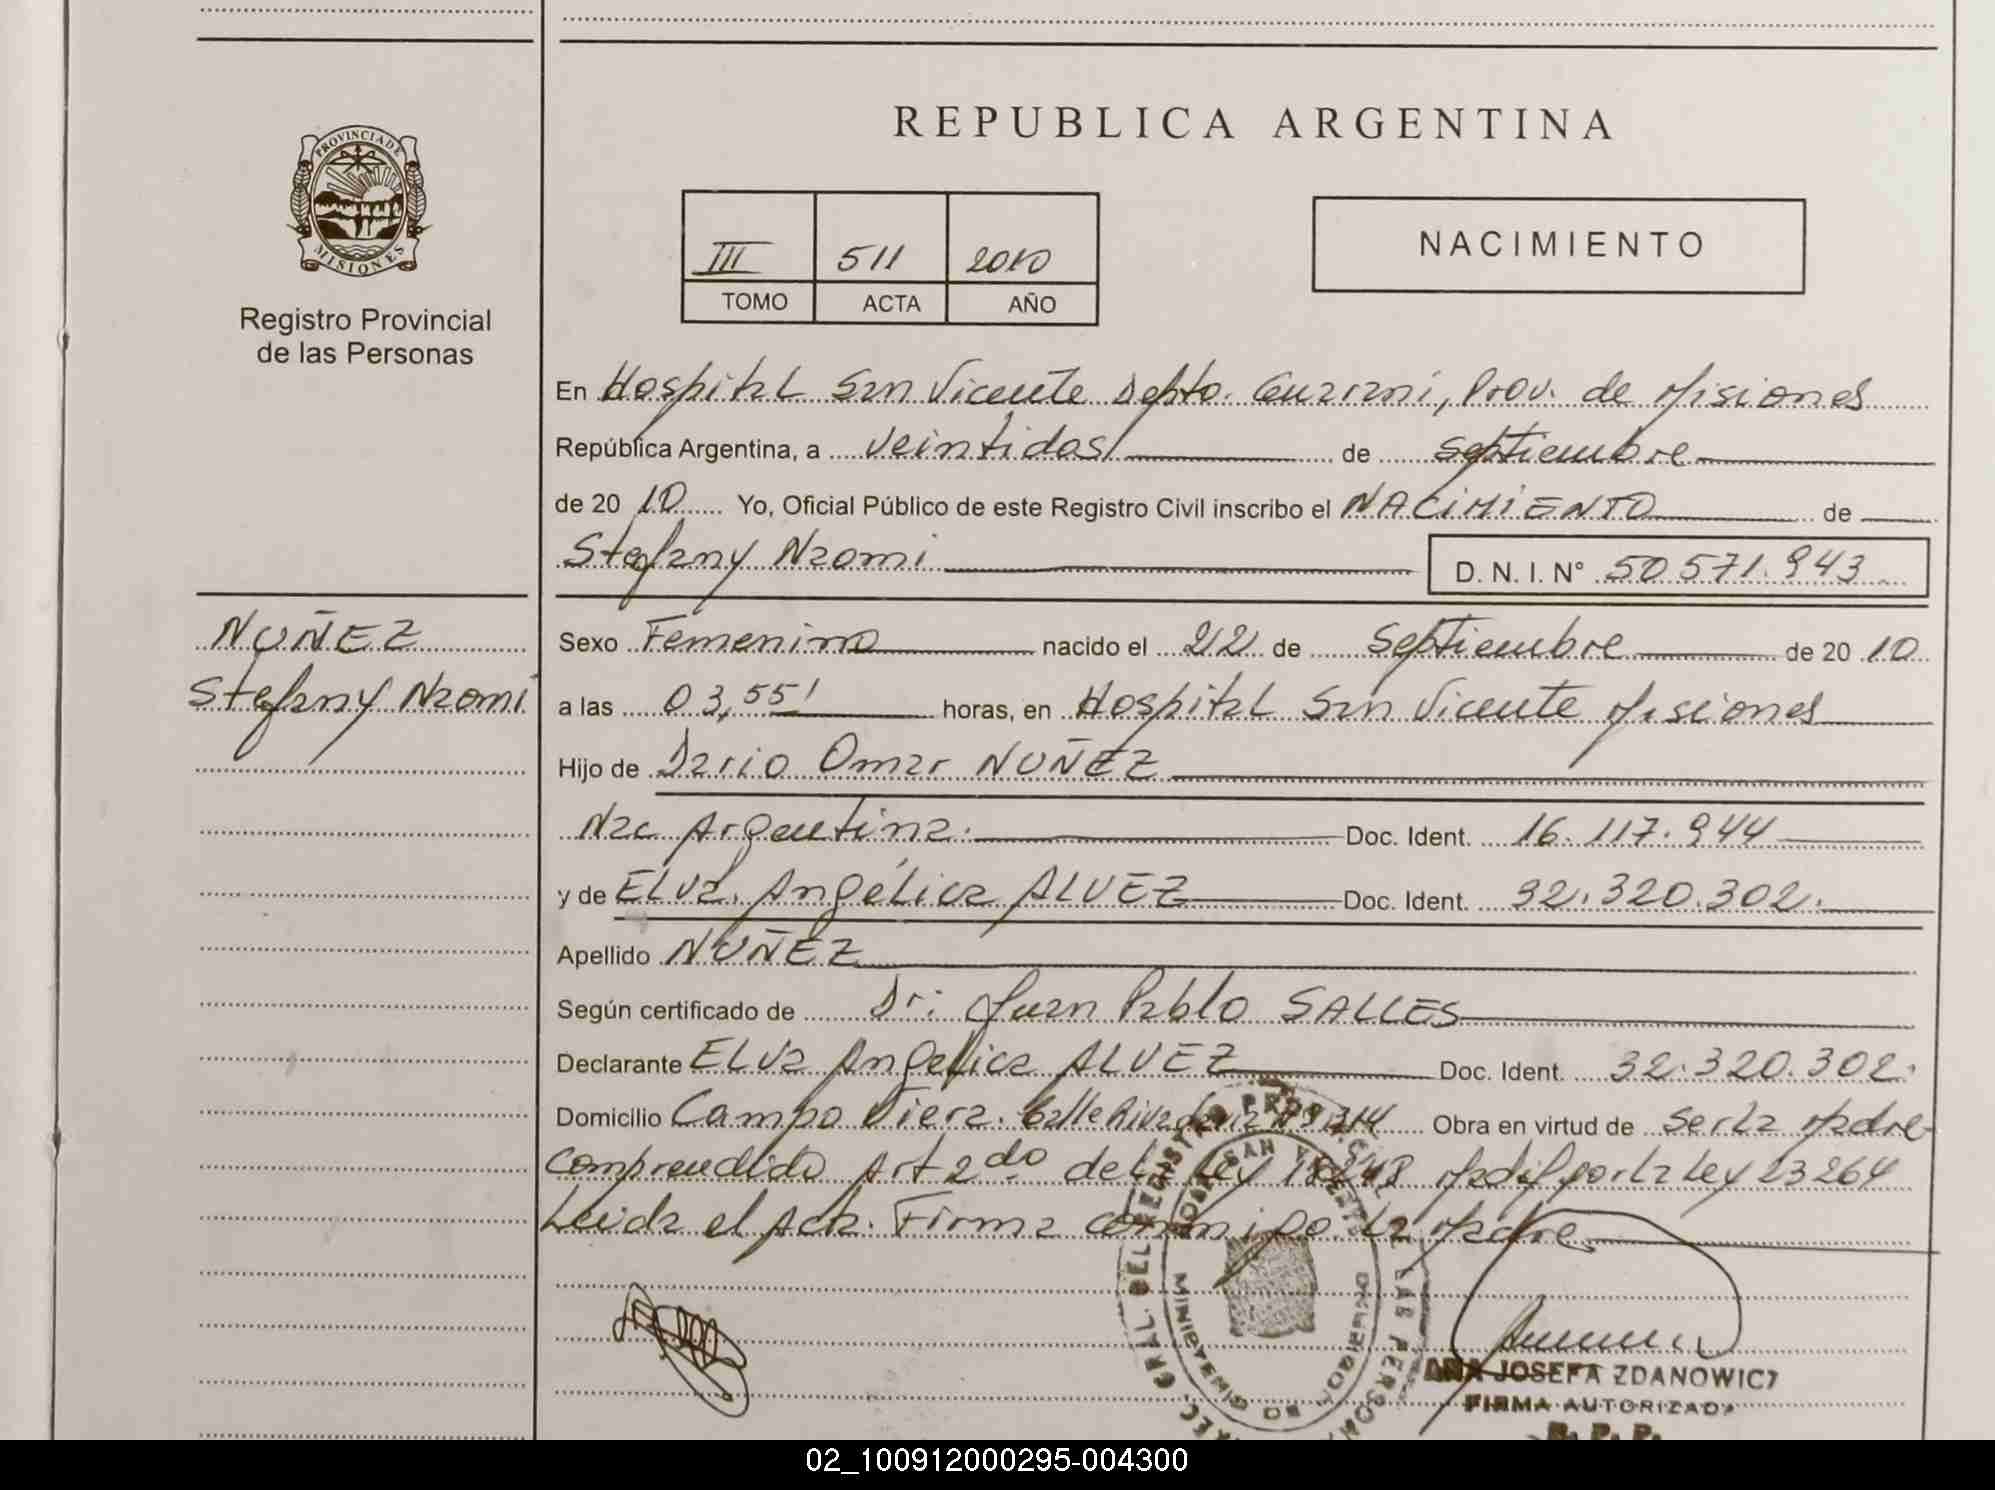 REPUBLICA ARGENTINA
PROVINCIA DE
MISIONES
Registro Provincial
de las Personas
III 511 2010
TOMO ACTA AÑO
NACIMIENTO
En Hospital San Vicente Depto. Guarani, Prov. de Misiones
República Argentina, a veintidos de septiembre
de 20 10 Yo, Oficial Público de este Registro Civil inscribo el NACIMIENTO de
Stefany Naomi D. N. I. N° 50.571.943
NUÑEZ
Stefany Naomi
Sexo Femenino nacido el 22 de Septiembre de 20 10
a las 03,55' horas, en Hospital San Vicente Misiones
Hijo de Dario Omar NUÑEZ
Nac Argentina. Doc. Ident. 16.117.944
y de ELVa Angélica ALVEZ Doc. Ident. 32.320.302.
Apellido NUÑEZ
Según certificado de Dr: Juan Pablo SALLES
Declarante ELVa Angelica ALVEZ Doc. Ident. 32.320.302.
Domicilio Campo Viera. Calle Rivadavia N° 314 Obra en virtud de ser la Madre
Comprendido Art 2do de la Ley 18248 Modif por la Ley 23264
Leida el Acta. Firma conmigo la Madre
ANA JOSEFA ZDANOWICZ
FIRMA AUTORIZADA
R. P. P.
02_100912000295-004300